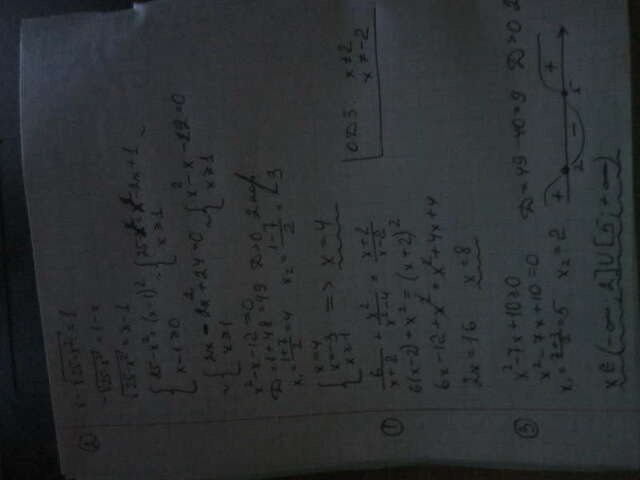 ②
x - √25-x² = 1
-√25-x² = 1-x
√25-x² = x-1
{ 25-x² = (x-1)²
x-1≥0
~ { 25-x² = x²-2x+1
x≥1
~
~ { 2x - 2x² + 24 = 0
x≥1
~ { x²-x-12=0
x≥1
x²-x-12=0
D=1+48=49 D>0
x₁ = 1+7/2 = 4 x₂ = 1-7/2 = -3
{ x=4
x=-3
x≥1
=> x=4
①
6/x+2 + x²/x²-4 = x+2/x-2
О.Д.З. x≠2
x≠-2
6(x-2)+x² = (x+2)²
6x-12+x² = x²+4x+4
2x=16 x=8
③
x²-7x+10≥0
x²-7x+10=0 D=49-40=9 D>0
x₁ = = 5 x₂ = 2
+ - +
2 5
x∈(-∞;2]∪[5;+∞)